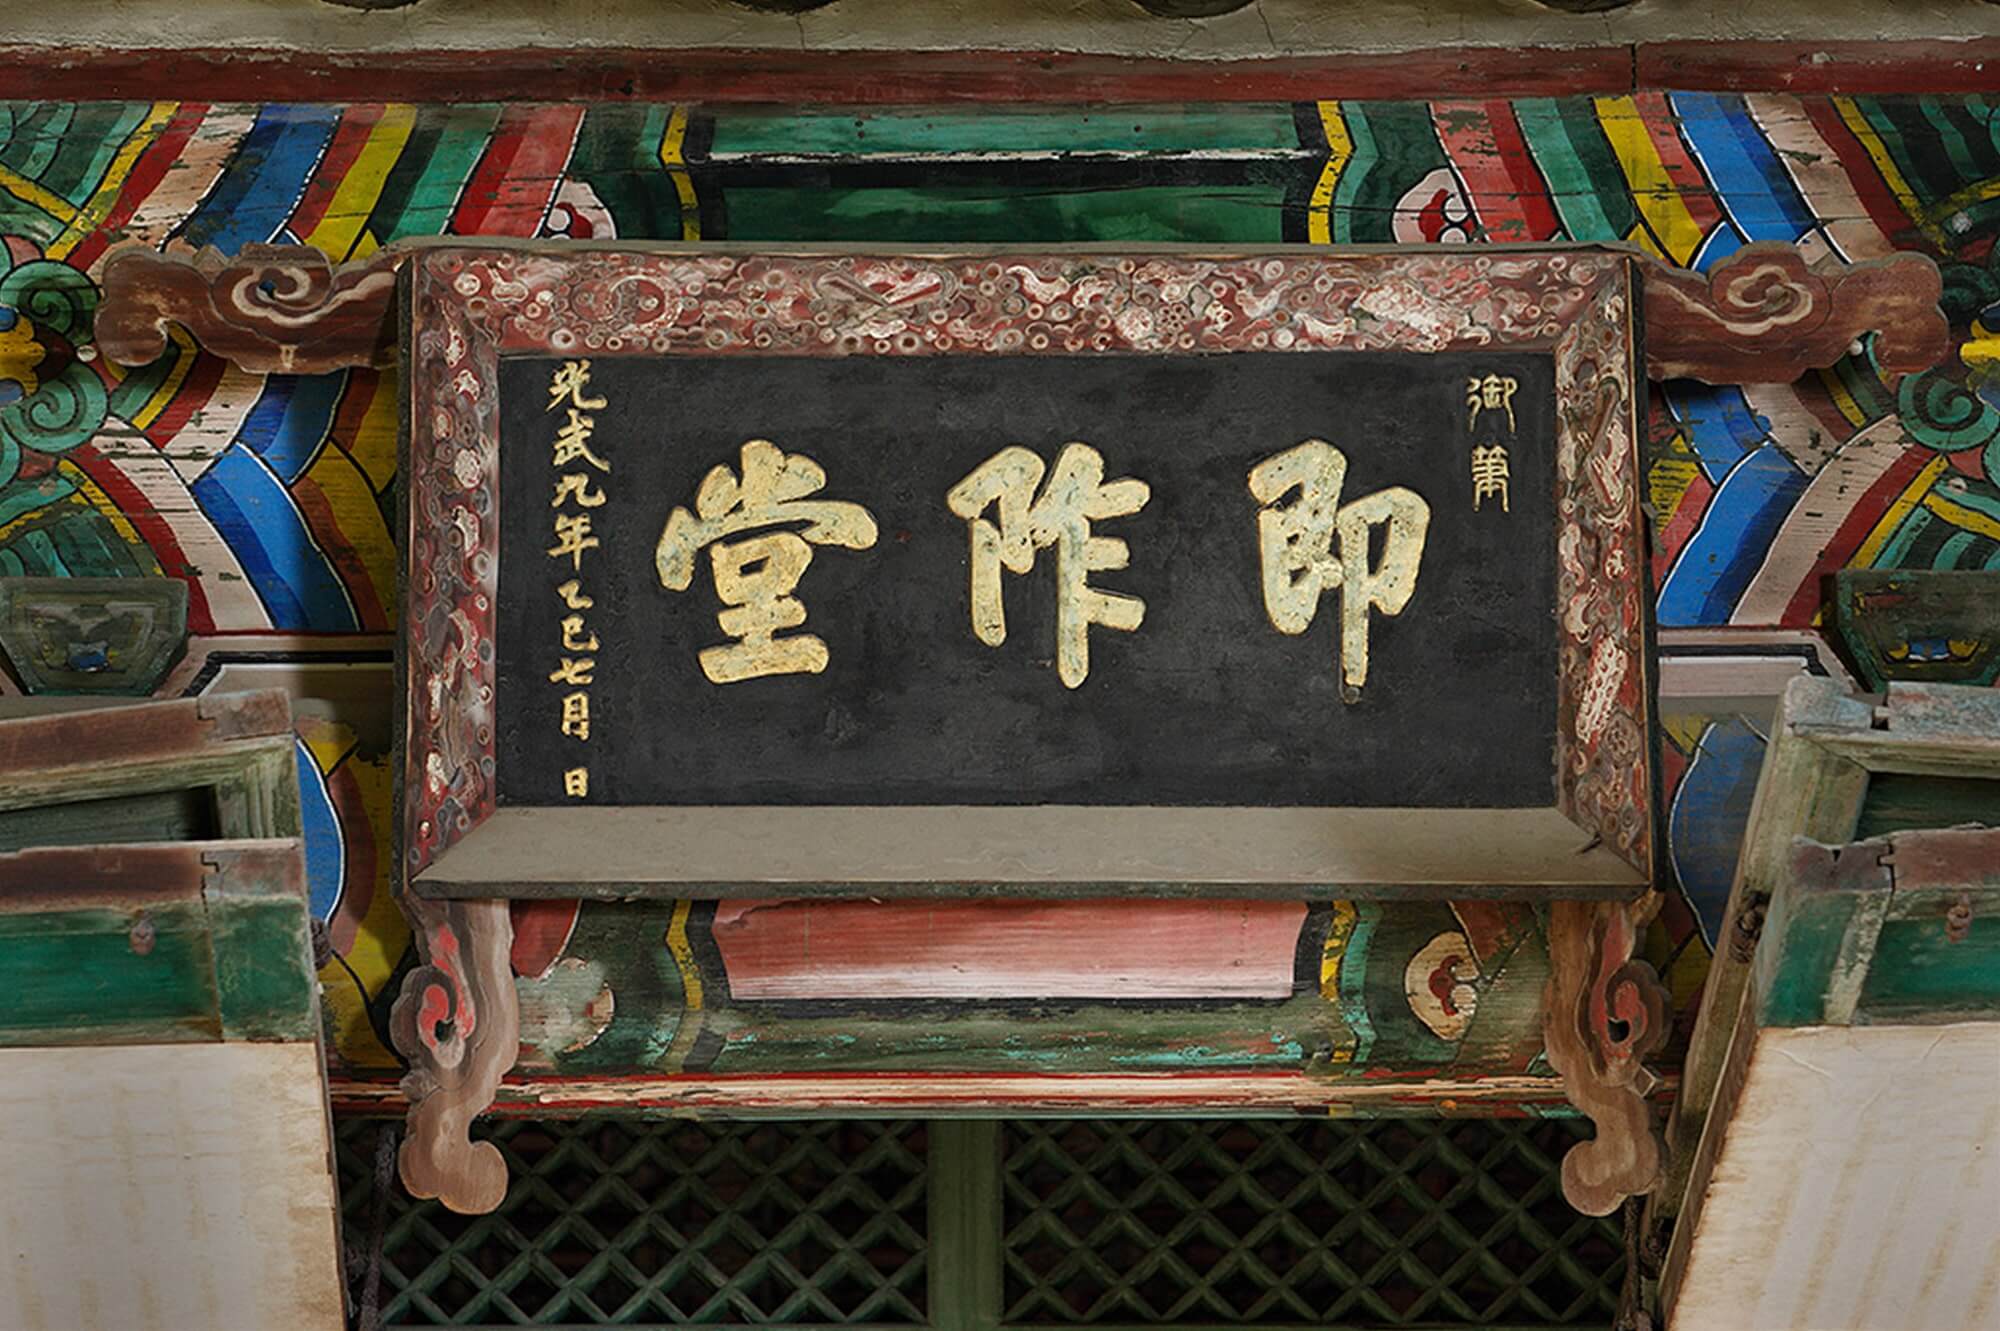 御筆
即阼堂
光武九年乙巳七月 日